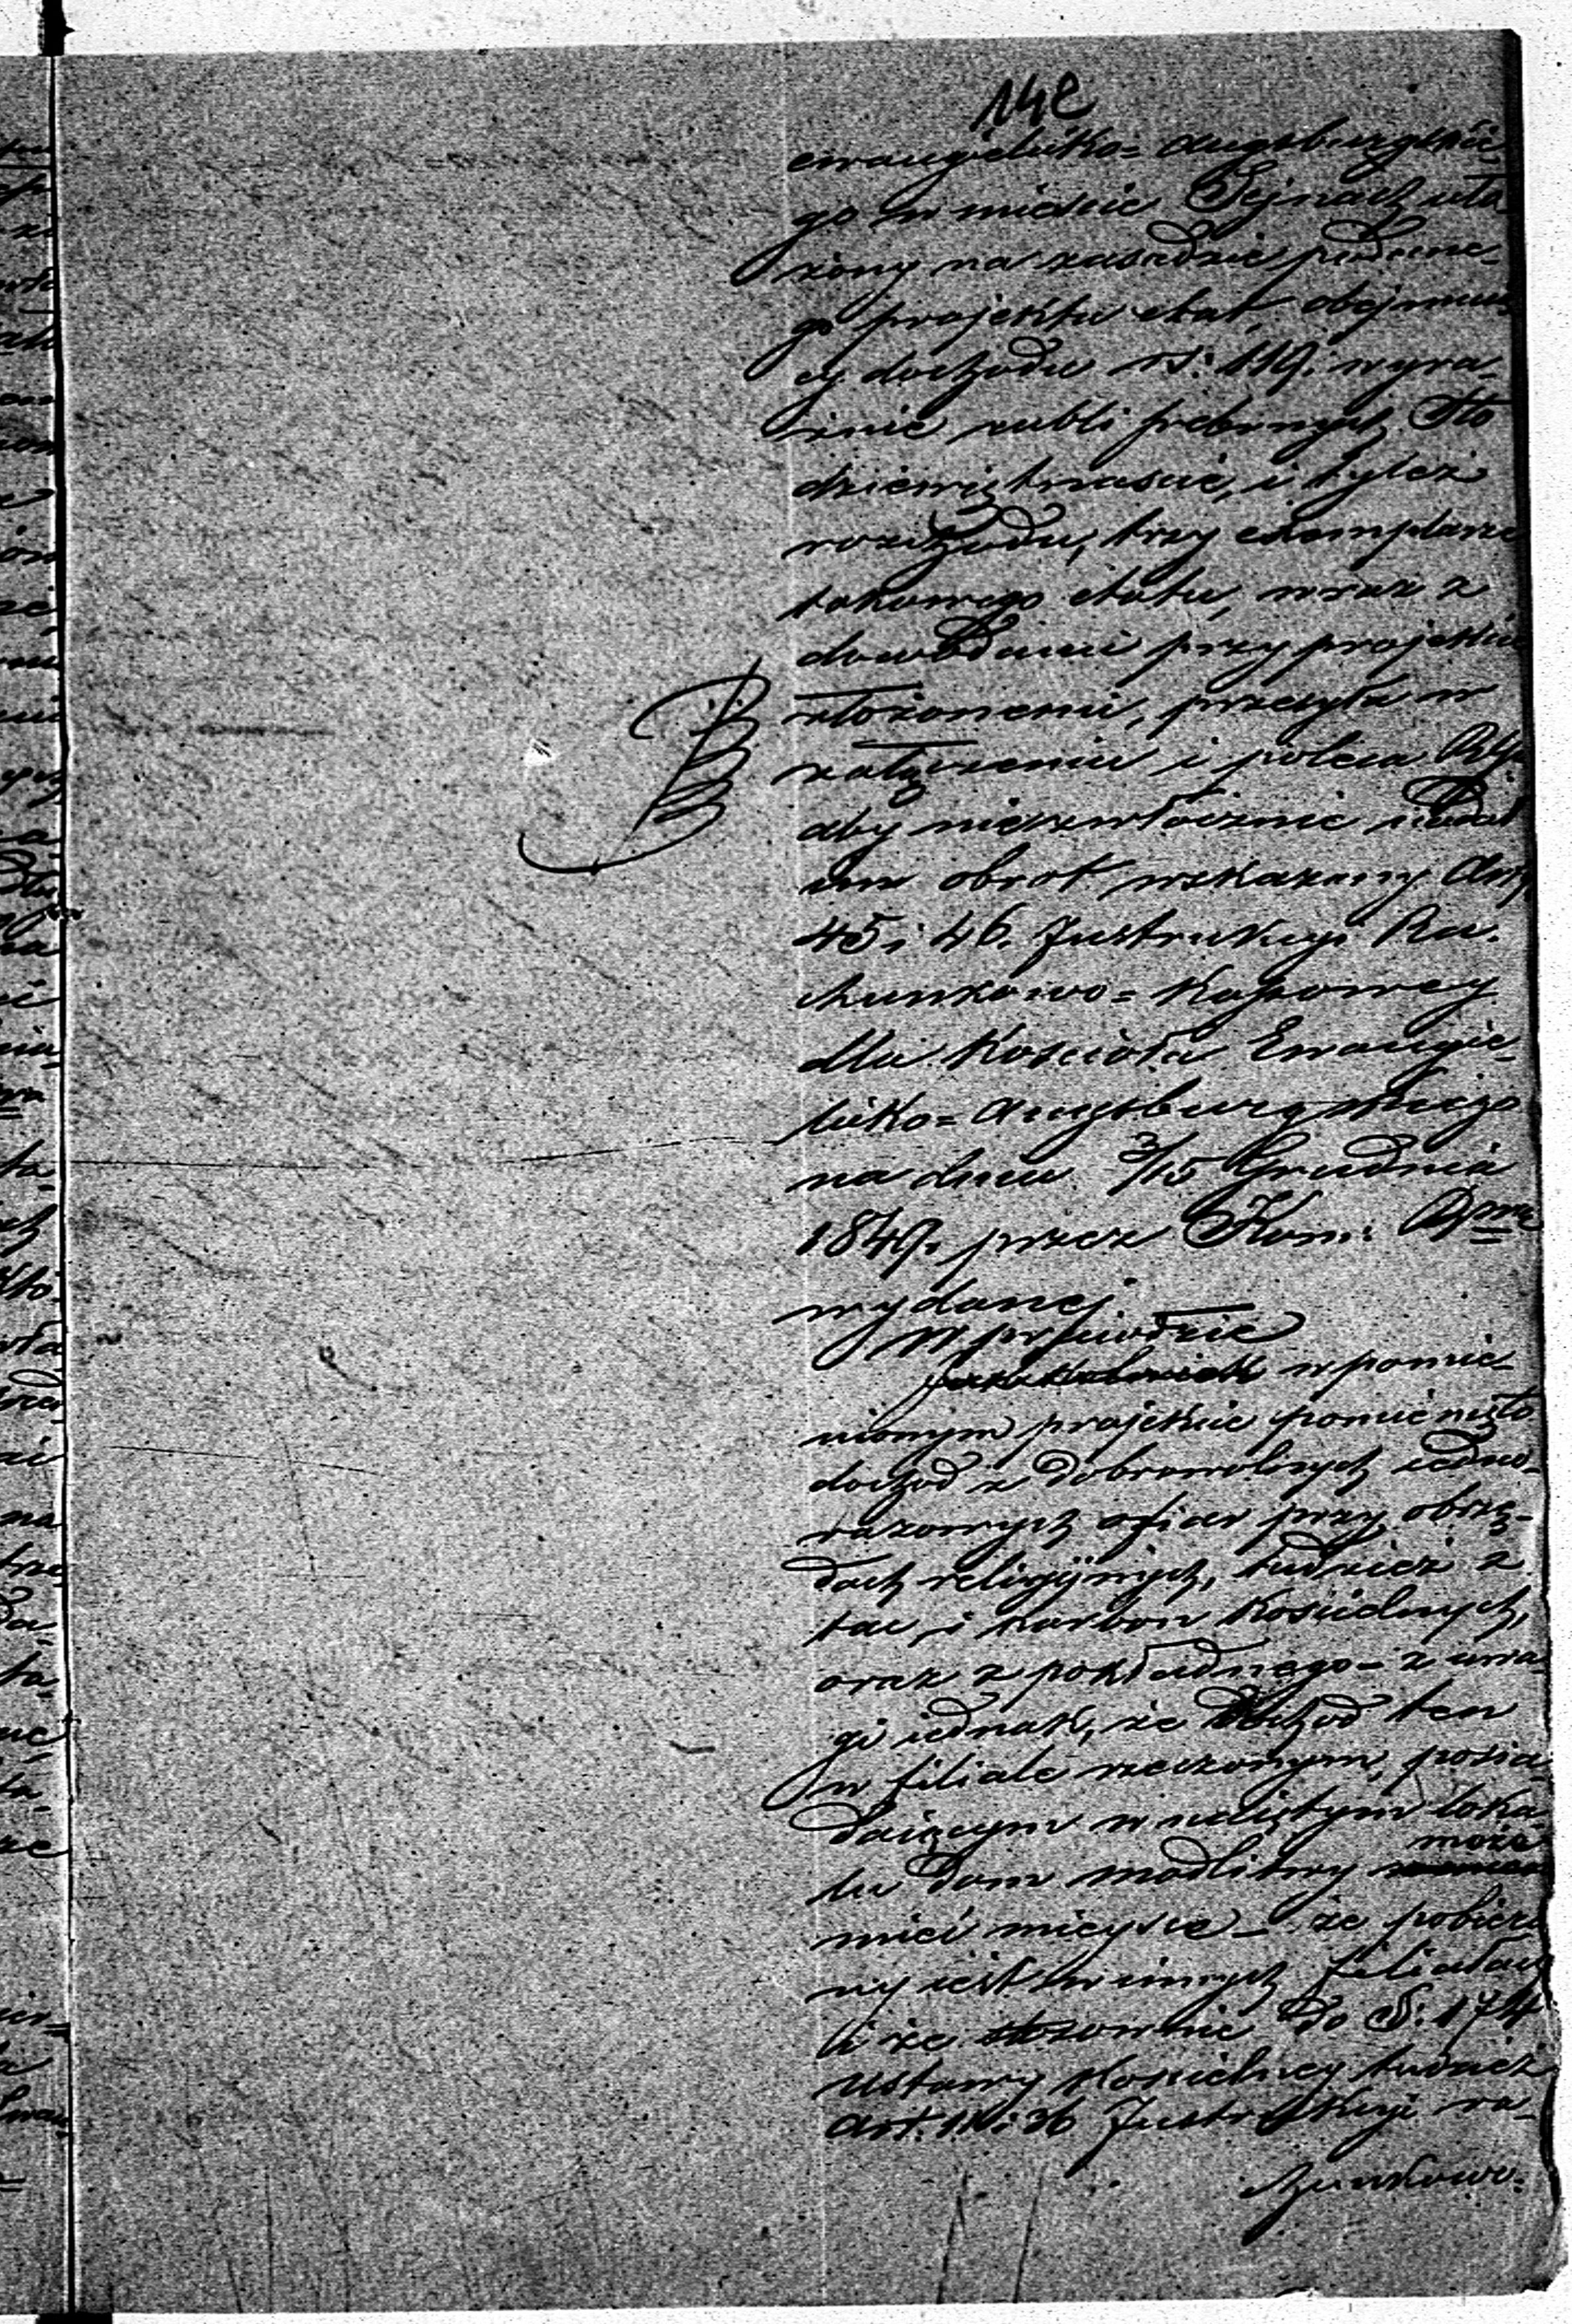 142
ewangelicko= Augsburgskie
go w mieście Sejnach uło
żony na zasadzie podane
go projektu etat, obejmują
cy dochodu rs: 119. wyra
źnie rubli srebrnych Sto
dziewiętnaście, i tyleż
rozchodu, trzy exemplarze
takowego etatu, wraz z
dowodami przy projekcie
złożonemi, przesyła w
załączeniu i poleca
aby niezwłocznie nadał
im obrot wskazany Art.
45 i 46. Instrukcyi Ra.
chunkowo= Kassowey
dla Kościoła Ewangie
licko= Augsburgskiego
na dniu 3/15 Grudnia
1849. przez Kom:
wydanej.
W przewodzie
w pomie
nionym projekcie pominięto
dochod z dobrowolnych iedno
razowych ofiar przy obrzę
dach religijnych, tudzież z
tac i karbon Kościelnych,
oraz z pokładnego= z uwa
gi iednak, że dochod ten
w filiale rzeczonym, posia
daiącym w naiętym loka
lu dom modlitwy może
mieć mieysce= że pobiera
ny iest w innych filiałach
i że stosownie do §: 174
Ustawy Kościelney tudzież
Art. 11 i 36 Instrukcyi ra
chunkowo.